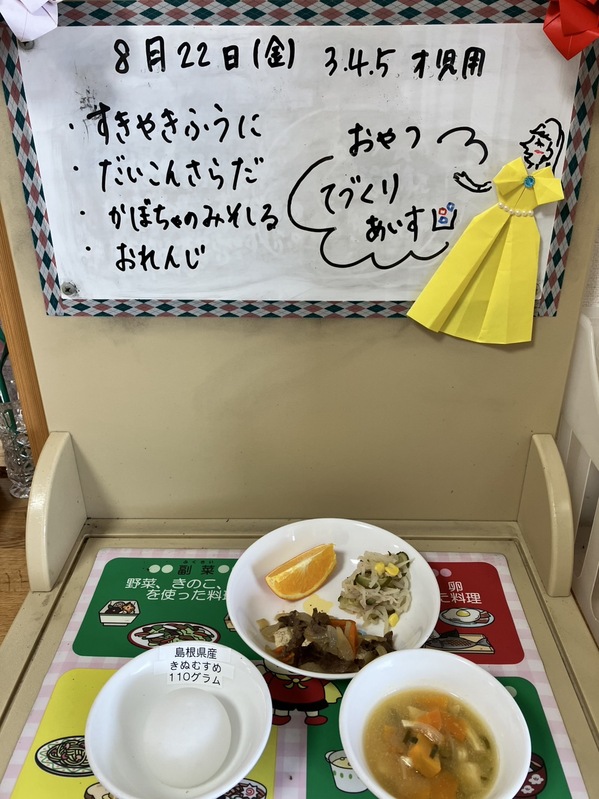 8月22日(金) 3.4.5才児用
・すきやきふうに
・だいこんさらだ
・かぼちゃのみそしる
・おれんじ
おやつ
てづくり
あいす
副菜
野菜、きのこ、
を使った料理
卵
料理
島根県産
きぬむすめ
110グラム